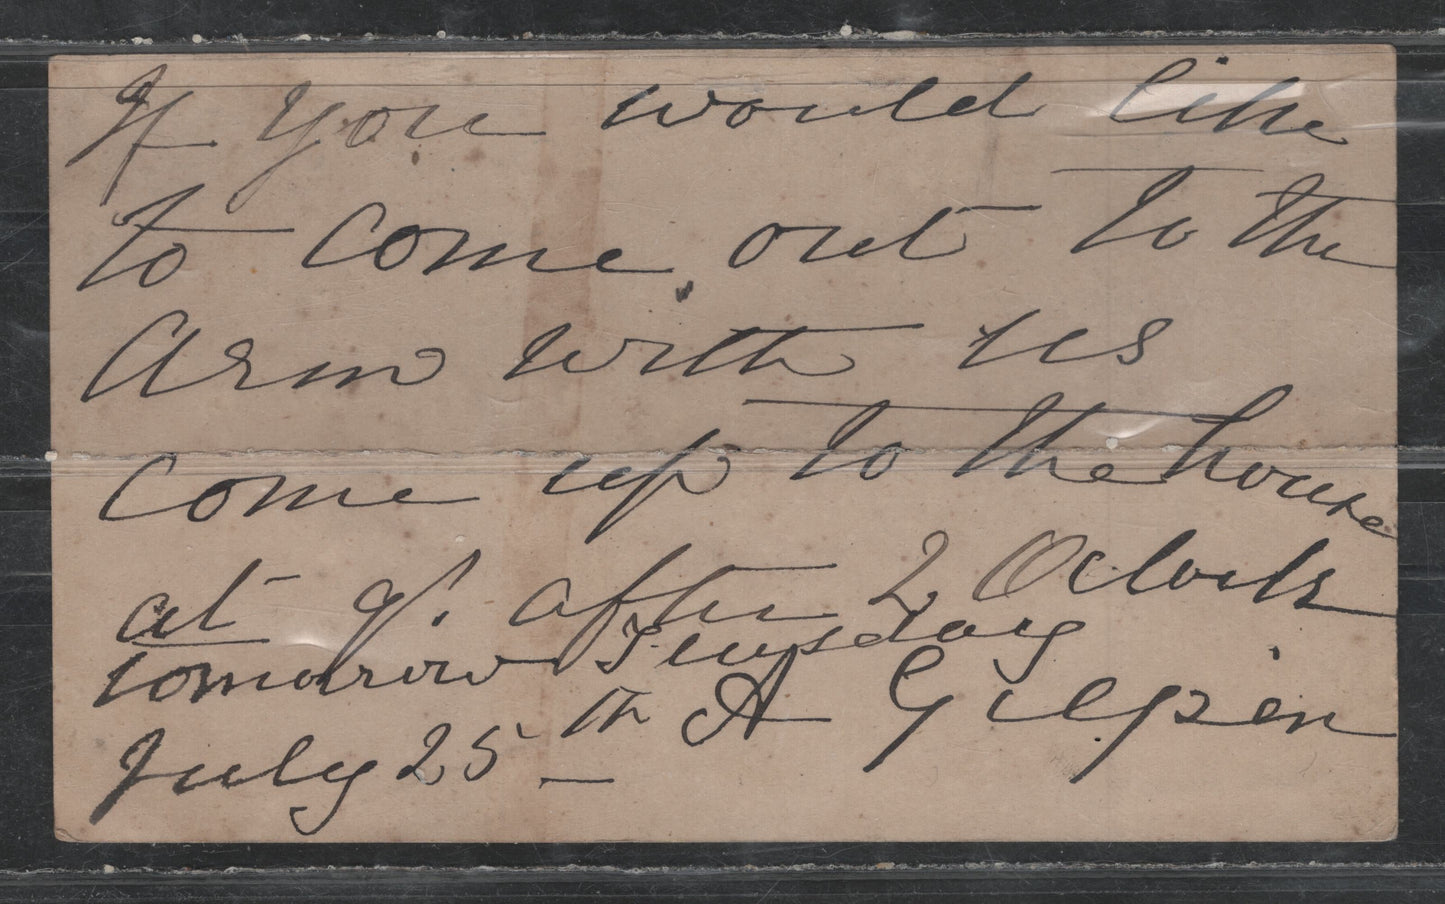 If you would like
to come out to the
Arm with us
come up to the house
at qr. after 2 Oclock
tomorrow Teusday
July 25th A Gilpin